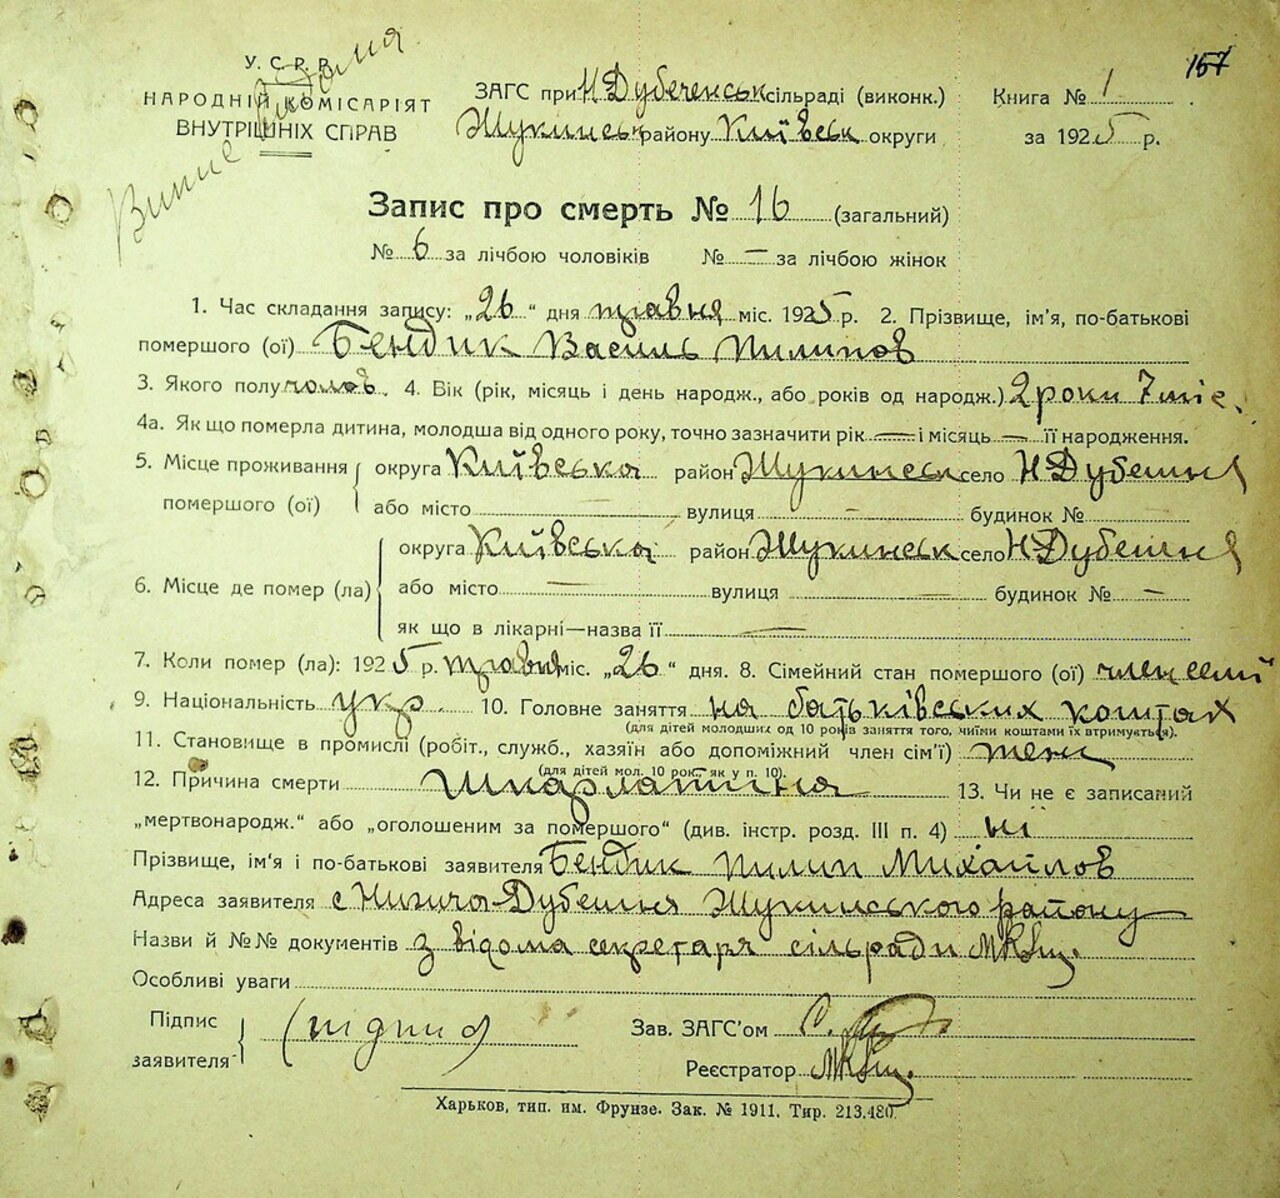 157
У. С. Р. Р.
НАРОДНІЙ КОМІСАРІЯТ
ВНУТРІШНІХ СПРАВ
ЗАГС при Н Дубеченськ сільраді (виконк.)
Жукинськ району Київськ округи
Книга № 1
за 1925 р.
Запис про смерть № 16 (загальний)
№ 6 за лічбою чоловіків № — за лічбою жінок
1. Час складання запису: „26“ дня травня міс. 1925 р. 2. Прізвище, ім'я, по-батькові
помершого (ої) Бендик Василь Пилипов
3. Якого полу чолов. 4. Вік (рік, місяць і день народж., або років од народж.) 2 роки 7 міс.
4а. Як що померла дитина, молодша від одного року, точно зазначити рік — і місяць — її народження.
5. Місце проживання округа Київська район Жукинськ село Н Дубешня
помершого (ої) або місто — вулиця — будинок №
округа Київська район Жукинськ село Н Дубешня
6. Місце де помер (ла) або місто — вулиця — будинок № —
як що в лікарні—назва її —
7. Коли помер (ла): 1925 р. травня міс. „26“ дня. 8. Сімейний стан помершого (ої) член семї
9. Національність укр. 10. Головне заняття на батьківських коштах
(для дітей молодших од 10 років заняття того, чиїми коштами їх втримується).
11. Становище в промислі (робіт., служб., хазяїн або допоміжний член сім'ї)
(для дітей мол. 10 рок. як у п. 10).
12. Причина смерти Шкарлатина 13. Чи не є записаний
„мертвонародж.“ або „оголошеним за помершого“ (див. інстр. розд. III п. 4) ні
Прізвище, ім'я і по-батькові заявителя Бендик Пилип Михайлов
Адреса заявителя с Нижча-Дубешня Жукинського району
Назви й №№ документів З відома секретаря сільради
Особливі уваги
Підпис
заявителя (підпис)
Зав. ЗАГС'ом
Реєстратор
Харьков, тип. им. Фрунзе. Зак. № 1911. Тир. 213.480.